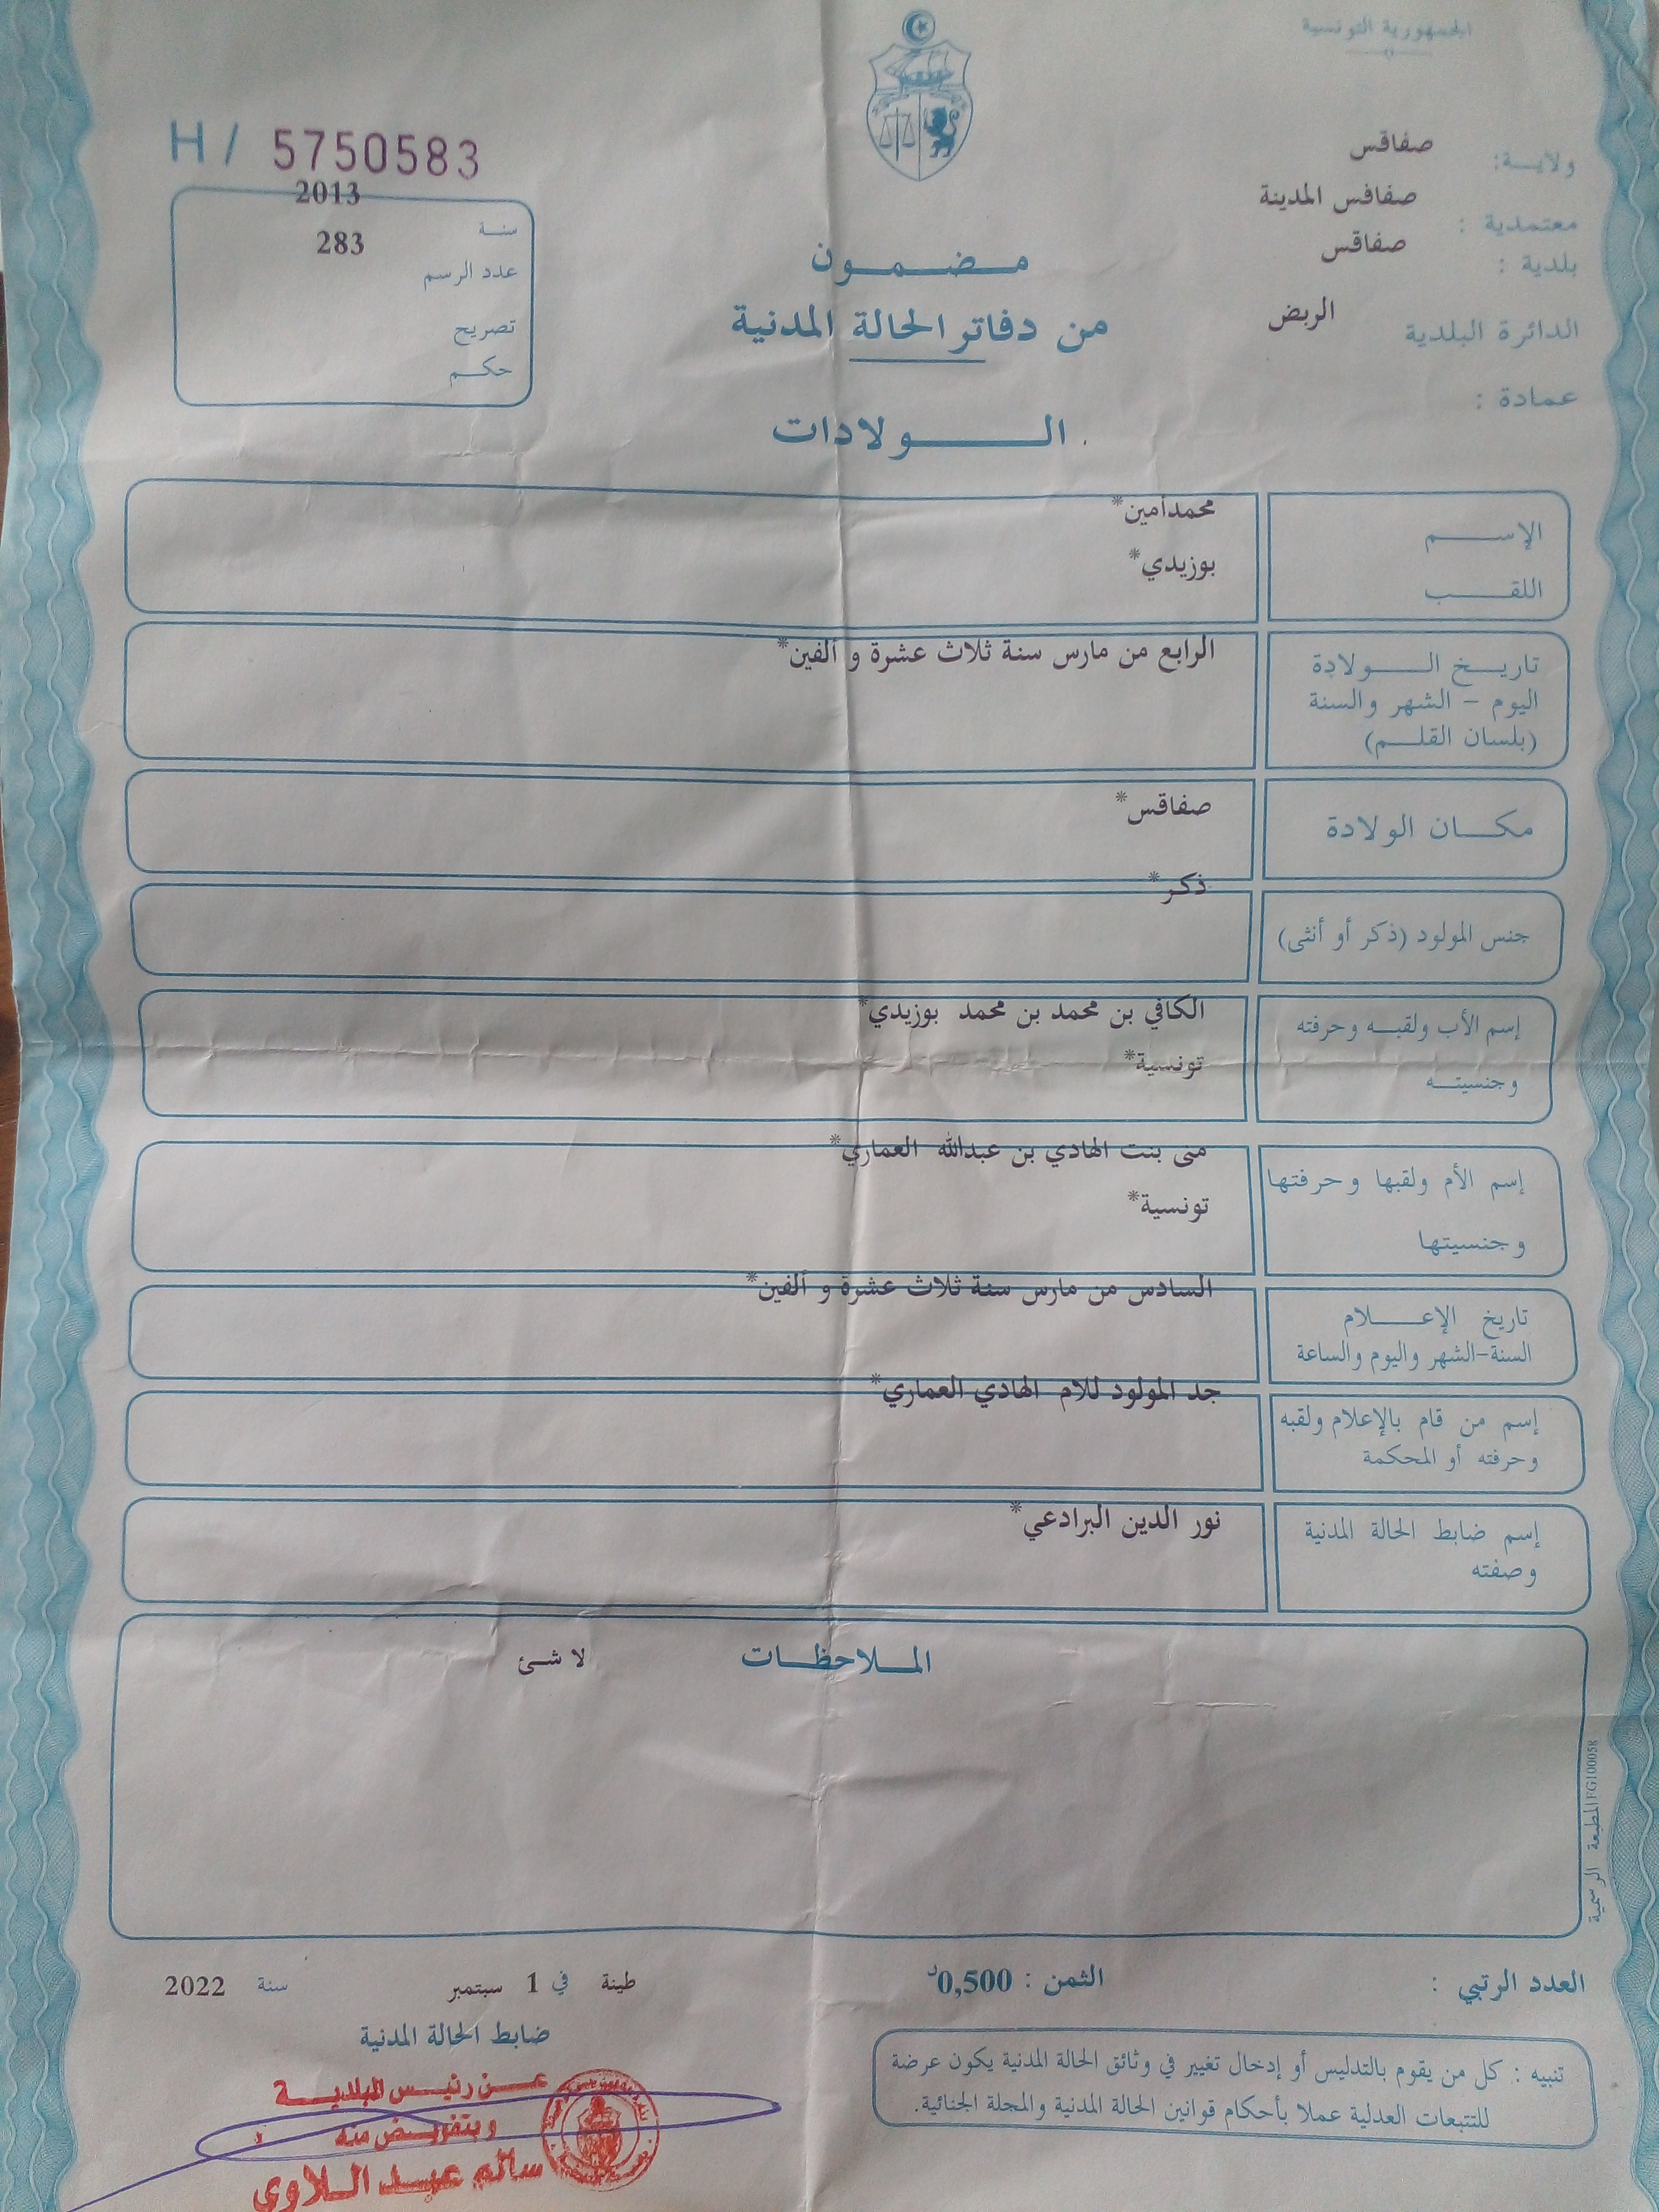 الجمهورية التونسية
H / 5750583
ولايـــة: صفاقس
معتمدية : صفاقس المدينة
بلدية : صفاقس
الدائرة البلدية الربض
عمادة :
سنـة 2013
عدد الرسم 283
تصريح
حكـم
مـضـمـون
من دفاتر الحالة المدنية
الـولادات
الإســـم محمدأمين*
اللقـــب بوزيدي*
تاريـخ الـولادة الرابع من مارس سنة ثلاث عشرة و ألفين*
اليوم - الشهر والسنة
(بلسان القلـم)
مكـان الولادة صفاقس*
جنس المولود (ذكر أو أنثى) ذكر*
إسم الأب ولقبـه وحرفته الكافي بن محمد بن محمد بوزيدي*
وجنسيتـه تونسية*
إسم الأم ولقبها وحرفتها منى بنت الهادي بن عبدالله العماري*
وجنسيتها تونسية*
تاريخ الإعـلام السادس من مارس سنة ثلاث عشرة و ألفين*
السنة-الشهر واليوم والساعة
إسم من قام بالإعلام ولقبه جد المولود للام الهادي العماري*
وحرفته أو المحكمة
إسم ضابط الحالة المدنية نور الدين البرادعي*
وصفته
المـلاحظـات لا شئ
المطبعة الرسمية FG100058
العدد الرتبي :
الثمن : 0,500د
طينة في 1 سبتمبر سنة 2022
ضابط الحالة المدنية
تنبيه : كل من يقوم بالتدليس أو إدخال تغيير في وثائق الحالة المدنية يكون عرضة
للتتبعات العدلية عملا بأحكام قوانين الحالة المدنية والمجلة الجنائية.
عـن رئيـس البلديـة
وبتفويـض منه
سالم عبد الـلاوي